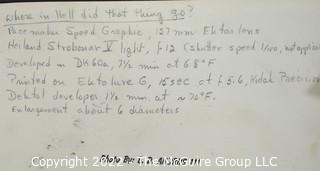 Where in Hell did that thing go?
Pacemaker Speed Graphic, 127 mm Ektar lens
Heiland Strobonar V light, f 12 (shutter speed 1/100, not applicable
Developed in DK60a, 7½ min at 68°F
Printed on Ektalure G, 15 sec at f 5.6, Kodak Precision
Dektol developer 1½ min. at ~72°F.
Enlargement about 6 diameters
Photo By:
Copyright 2022 The McGuire Group LLC